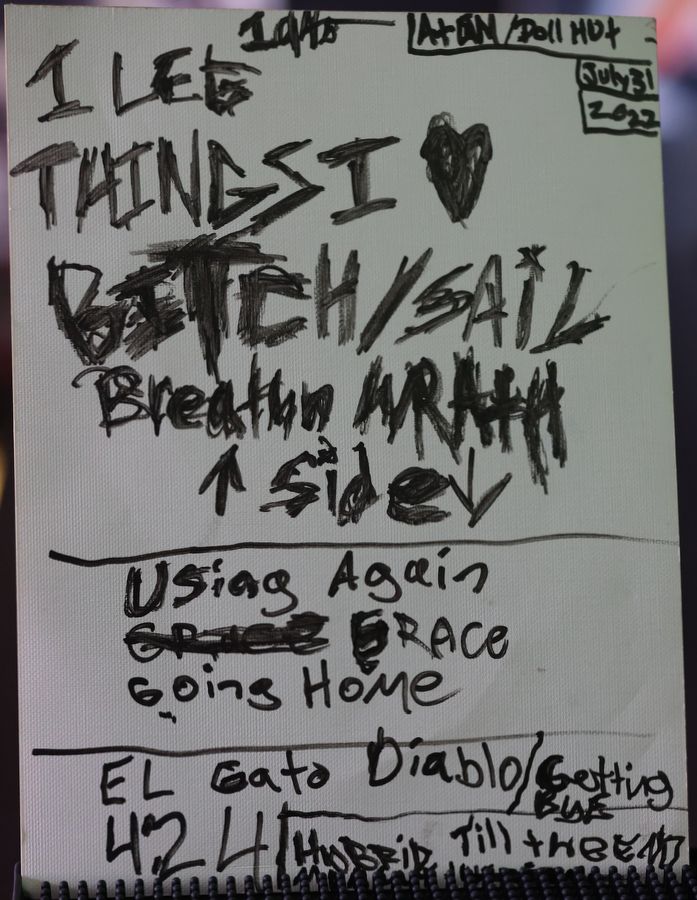 AtEN/Doll HUt
July 31
2022
I LEG
THINGS I
BITCH/SAiL
Breathn WRAtH
↑ Side ↓
Using Again
GRACe
Going HoMe
EL Gato Diablo/Getting
424 HYBRiD Till tHe END